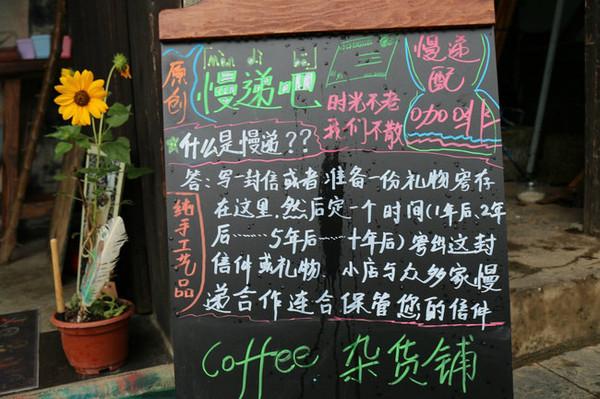 原创
慢递吧
时光不老
我们不散
慢递
配
咖啡
什么是慢递??
纯手工艺品
答:写一封信或者准备一份礼物寄存
在这里.然后定一个时间(1年后、2年
后……5年后……十年后)寄出这封
信件或礼物、小店与众多家慢
递合作连合保管您的信件
coffee.杂货铺